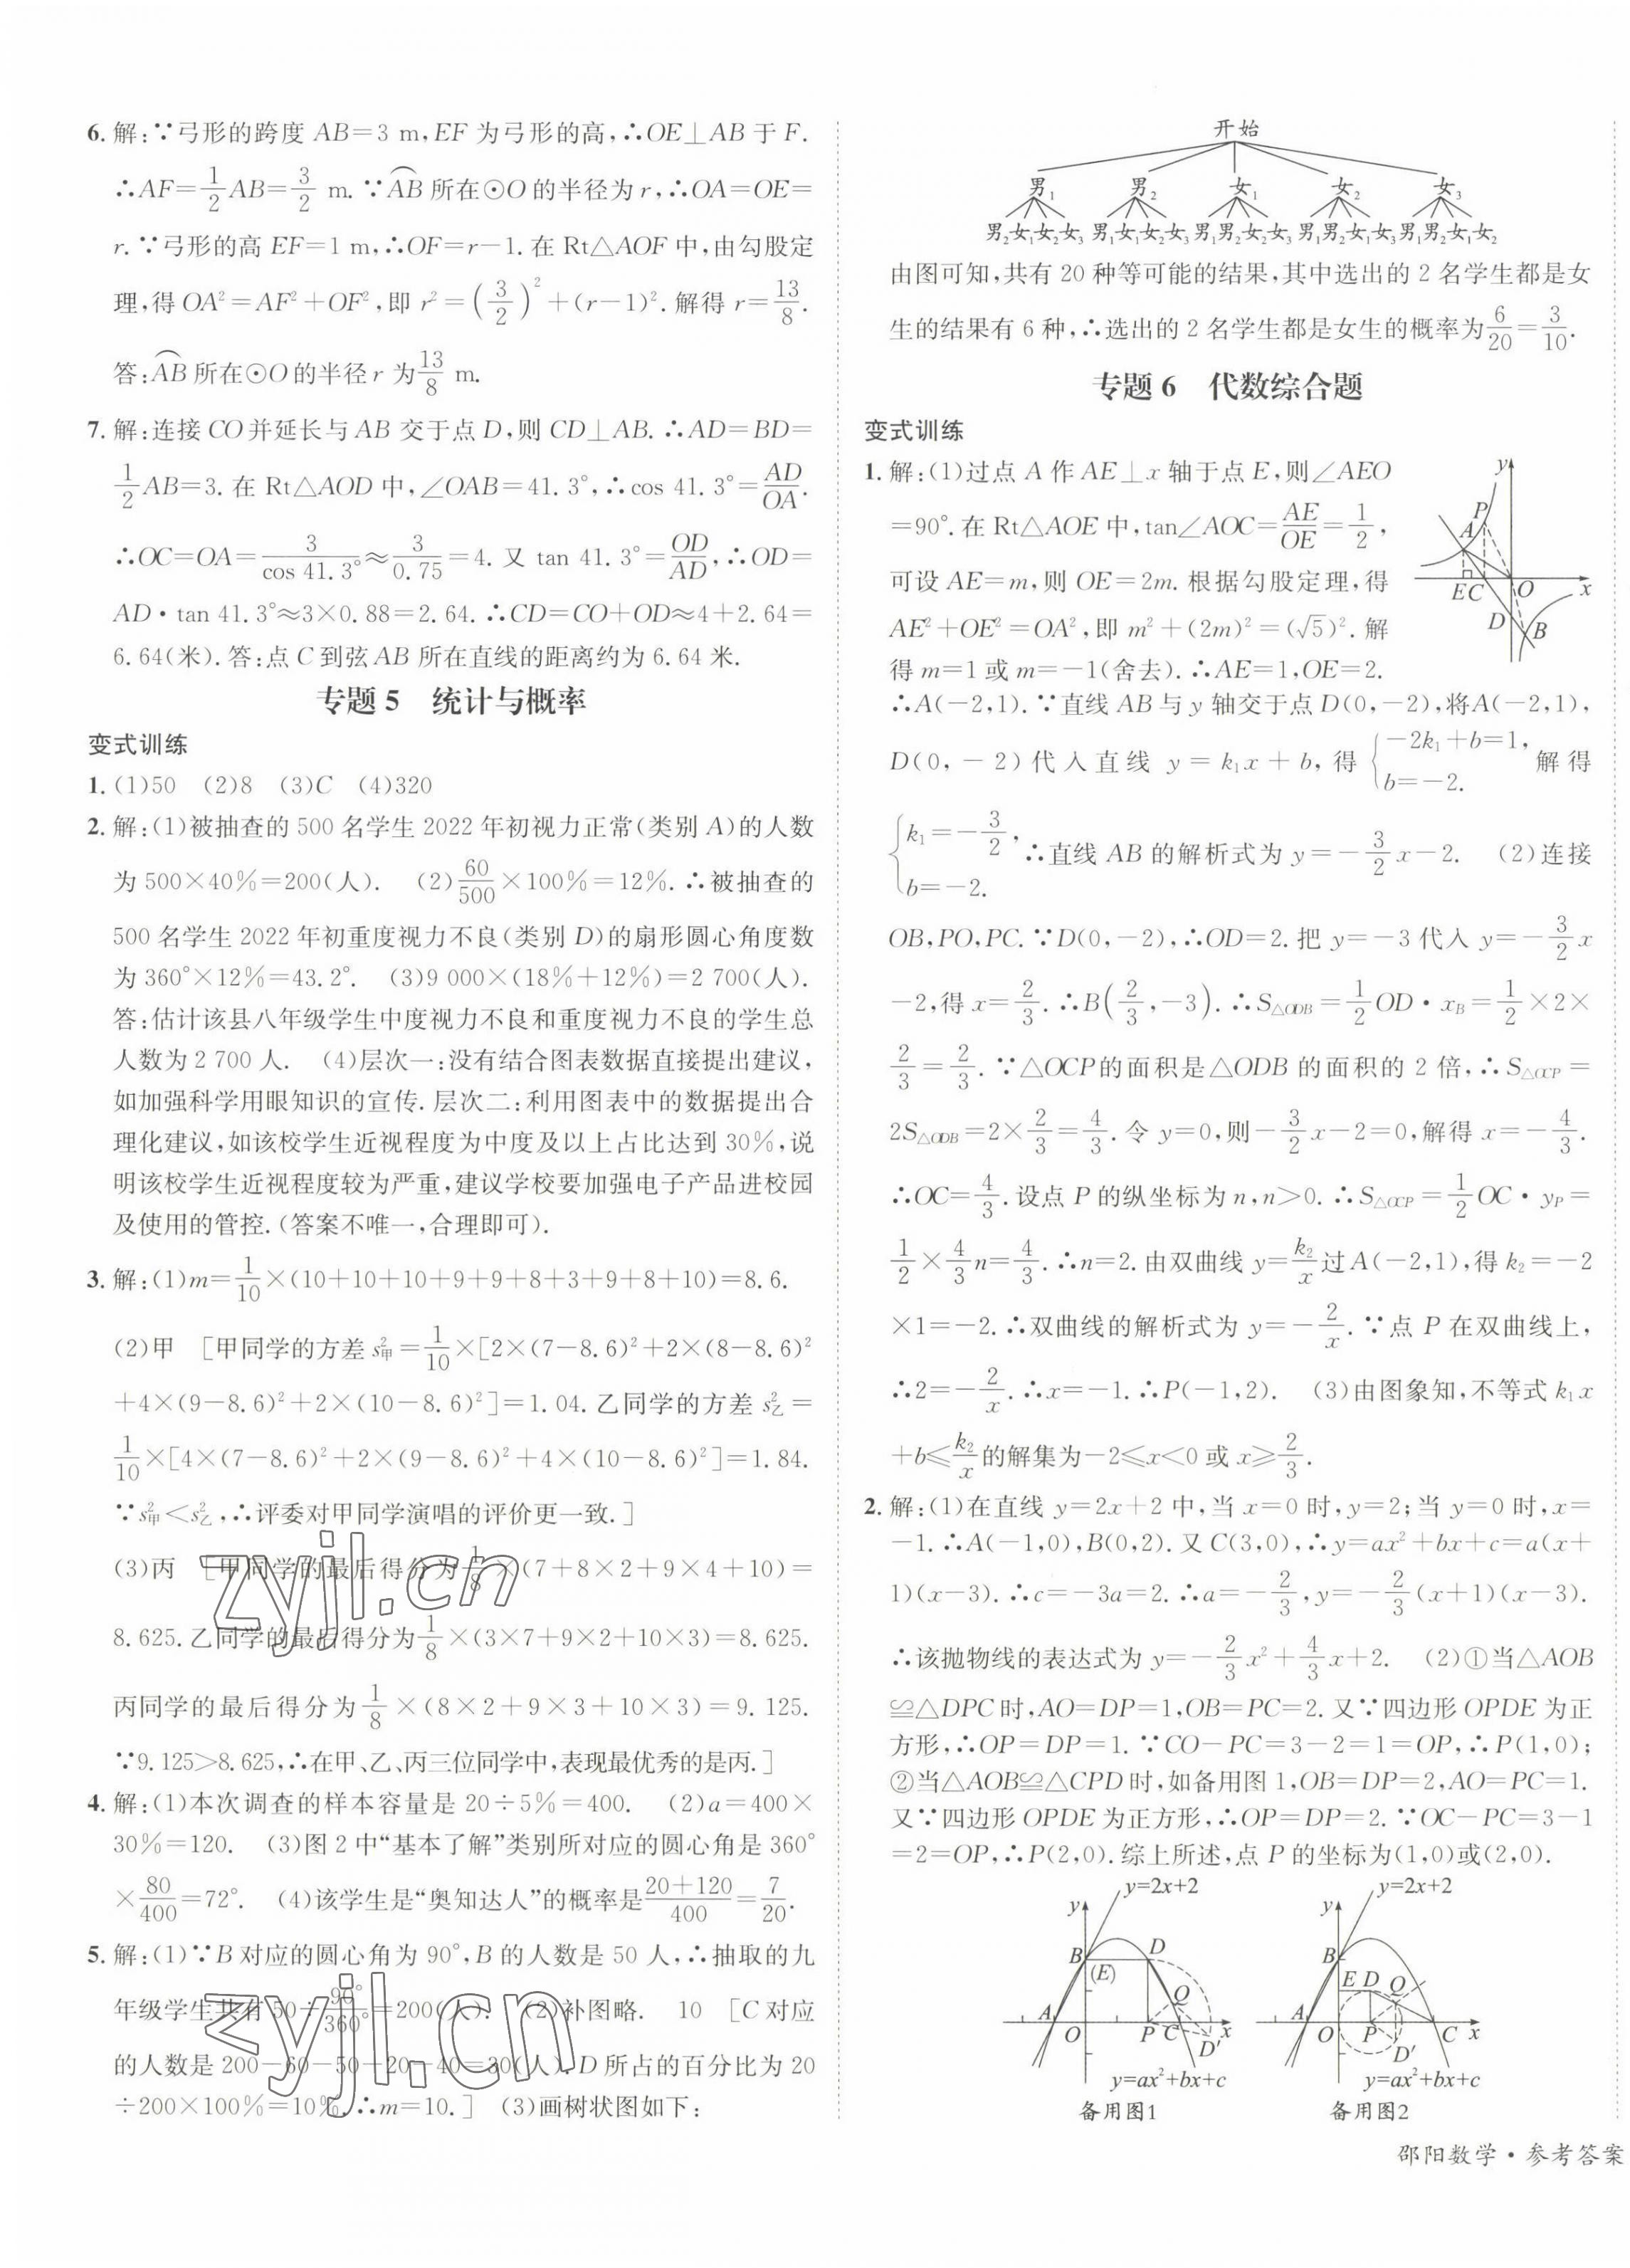 6. 解:∵弓形的跨度 AB=3 m,EF 为弓形的高,∴OE⊥AB 于 F.
∴AF=1/2AB=3/2 m. ∵⌒AB 所在⊙O 的半径为 r,∴OA=OE=
r. ∵弓形的高 EF=1 m,∴OF=r-1. 在 Rt△AOF 中,由勾股定
理,得 OA²=AF²+OF²,即 r²=(3/2)²+(r-1)². 解得 r=13/8.
答:⌒AB 所在⊙O 的半径 r 为 13/8 m.
7. 解:连接 CO 并延长与 AB 交于点 D,则 CD⊥AB. ∴AD=BD=
1/2AB=3. 在 Rt△AOD 中,∠OAB=41. 3°,∴cos 41. 3°=AD/OA.
∴OC=OA=3/cos 41. 3°≈3/0. 75=4. 又 tan 41. 3°=OD/AD,∴OD=
AD·tan 41. 3°≈3×0. 88=2. 64. ∴CD=CO+OD≈4+2. 64=
6. 64(米). 答:点 C 到弦 AB 所在直线的距离约为 6. 64 米.
专题 5 统计与概率
变式训练
1. (1)50 (2)8 (3)C (4)320
2. 解:(1)被抽查的 500 名学生 2022 年初视力正常(类别 A)的人数
为 500×40%=200(人). (2)60/500×100%=12%. ∴被抽查的
500 名学生 2022 年初重度视力不良(类别 D)的扇形圆心角度数
为 360°×12%=43. 2°. (3)9 000×(18%+12%)=2 700(人).
答:估计该县八年级学生中度视力不良和重度视力不良的学生总
人数为 2 700 人. (4)层次一:没有结合图表数据直接提出建议,
如加强科学用眼知识的宣传. 层次二:利用图表中的数据提出合
理化建议,如该校学生近视程度为中度及以上占比达到 30%,说
明该校学生近视程度较为严重,建议学校要加强电子产品进校园
及使用的管控. (答案不唯一,合理即可).
3. 解:(1)m=1/10×(10+10+10+9+9+8+3+9+8+10)=8. 6.
(2)甲 [甲同学的方差 s²甲=1/10×[2×(7-8. 6)²+2×(8-8. 6)²
+4×(9-8. 6)²+2×(10-8. 6)²]=1. 04. 乙同学的方差 s²乙=
1/10×[4×(7-8. 6)²+2×(9-8. 6)²+4×(10-8. 6)²]=1. 84.
∵s²甲<s²乙,∴评委对甲同学演唱的评价更一致. ]
(3)丙 [甲同学的最后得分为1/8×(7+8×2+9×4+10)=
8. 625. 乙同学的最后得分为1/8×(3×7+9×2+10×3)=8. 625.
丙同学的最后得分为1/8×(8×2+9×3+10×3)=9. 125.
∵9. 125>8. 625,∴在甲、乙、丙三位同学中,表现最优秀的是丙. ]
4. 解:(1)本次调查的样本容量是 20÷5%=400. (2)a=400×
30%=120. (3)图 2 中“基本了解”类别所对应的圆心角是 360°
×80/400=72°. (4)该学生是“奥知达人”的概率是(20+120)/400=7/20.
5. 解:(1)∵B 对应的圆心角为 90°,B 的人数是 50 人,∴抽取的九
年级学生共有 50÷90°/360°=200(人). (2)补图略. 10 [C 对应
的人数是 200-60-50-20-40=30(人). D 所占的百分比为 20
÷200×100%=10%. ∴m=10. ] (3)画树状图如下:
开始
男1 男2 女1 女2 女3
男2女1女2女3 男1女1女2女3 男1男2女2女3 男1男2女1女3 男1男2女1女2
由图可知,共有 20 种等可能的结果,其中选出的 2 名学生都是女
生的结果有 6 种,∴选出的 2 名学生都是女生的概率为6/20=3/10.
专题 6 代数综合题
变式训练
1. 解:(1)过点 A 作 AE⊥x 轴于点 E,则∠AEO
=90°. 在 Rt△AOE 中,tan∠AOC=AE/OE=1/2,
可设 AE=m,则 OE=2m. 根据勾股定理,得
AE²+OE²=OA²,即 m²+(2m)²=(√5)². 解
得 m=1 或 m=-1(舍去). ∴AE=1,OE=2.
y
P
A
E C O x
D
B
∴A(-2,1). ∵直线 AB 与 y 轴交于点 D(0,-2),将A(-2,1),
D(0,-2)代入直线 y=k₁x+b,得 {-2k₁+b=1, b=-2. 解得
{k₁=-3/2, b=-2. ∴直线 AB 的解析式为 y=-3/2x-2. (2)连接
OB,PO,PC. ∵D(0,-2),∴OD=2. 把 y=-3 代入 y=-3/2x
-2,得 x=2/3. ∴B(2/3,-3). ∴S△ODB=1/2OD·xB=1/2×2×
2/3=2/3. ∵△OCP的面积是△ODB 的面积的 2 倍,∴S△OCP=
2S△ODB=2×2/3=4/3. 令 y=0,则-3/2x-2=0,解得 x=-4/3.
∴OC=4/3. 设点 P 的纵坐标为 n,n>0. ∴S△OCP=1/2OC·yP=
1/2×4/3n=4/3. ∴n=2. 由双曲线 y=k₂/x过 A(-2,1),得 k₂=-2
×1=-2. ∴双曲线的解析式为 y=-2/x. ∵点 P 在双曲线上,
∴2=-2/x. ∴x=-1. ∴P(-1,2). (3)由图象知,不等式 k₁x
+b≤k₂/x的解集为-2≤x<0 或 x≥2/3.
2. 解:(1)在直线 y=2x+2 中,当 x=0 时,y=2;当 y=0 时,x=
-1. ∴A(-1,0),B(0,2). 又 C(3,0),∴y=ax²+bx+c=a(x+
1)(x-3). ∴c=-3a=2. ∴a=-2/3,y=-2/3(x+1)(x-3).
∴该抛物线的表达式为 y=-2/3x²+4/3x+2. (2)①当△AOB
≌△DPC 时,AO=DP=1,OB=PC=2. 又∵四边形 OPDE 为正
方形,∴OP=DP=1. ∵CO-PC=3-2=1=OP,∴P(1,0);
②当△AOB≌△CPD 时,如备用图 1,OB=DP=2,AO=PC=1.
又∵四边形 OPDE 为正方形,∴OP=DP=2. ∵OC-PC=3-1
=2=OP,∴P(2,0). 综上所述,点 P 的坐标为(1,0)或(2,0).
y y=2x+2
B D
(E)
Q
A O P C x
D′
y=ax²+bx+c
备用图1
y y=2x+2
B
E D Q
A O P C x
D′
y=ax²+bx+c
备用图2
邵阳数学·参考答案
zyjl.cn
zyjl.cn